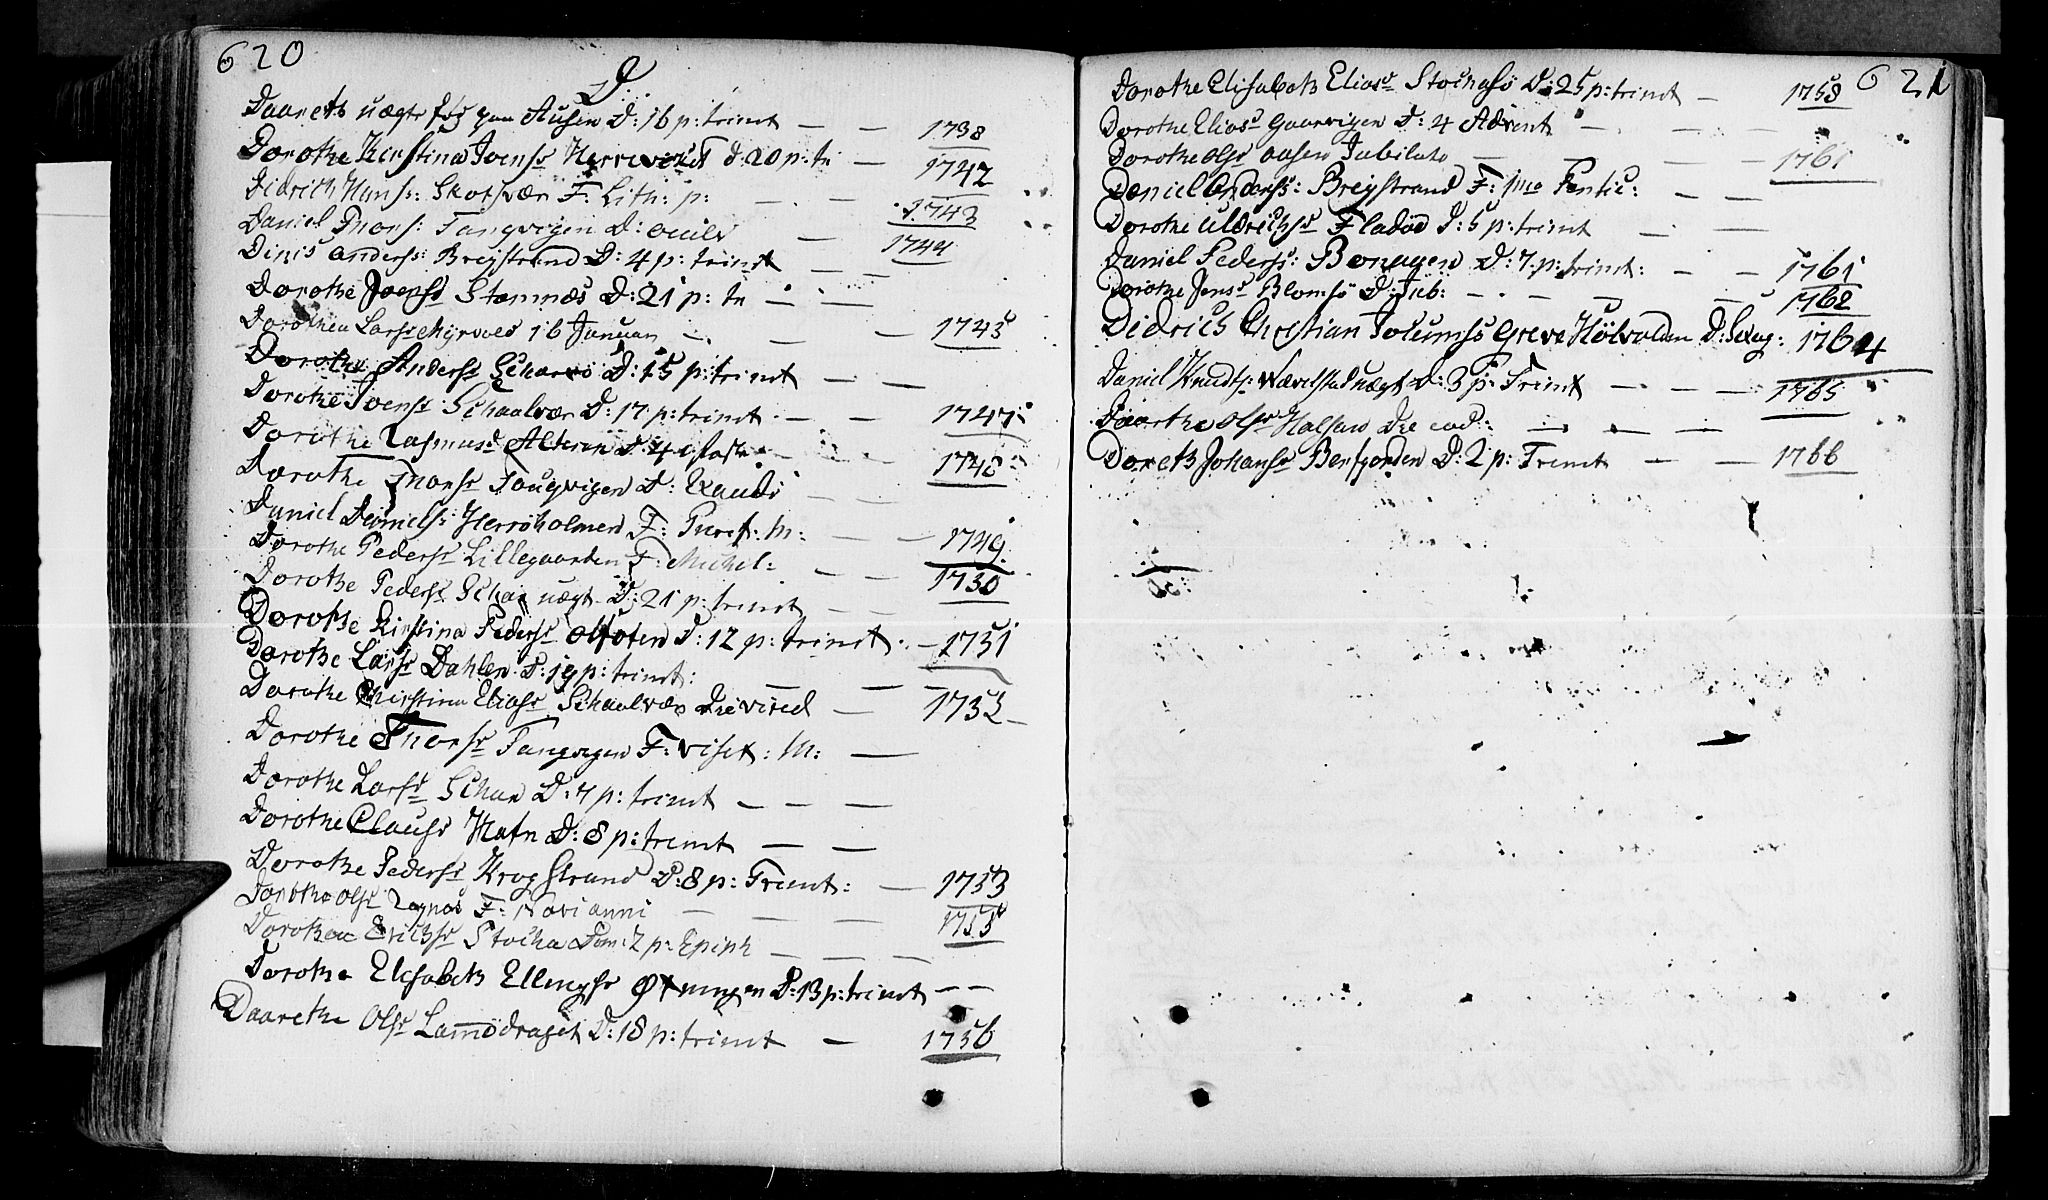 620
D.
Daareth uægte Ausen D: 16 p: trinit — — 1738
Dorothe Kirstina Joensd Herrevold D. 20 p: tr — 1742
Didrich Hans: Skotsvær F: Lith: p: — — 1743
Daniel Thors: Tangvigen D: oculi — 1744
Dinis anderss: Breystrand D: 4 p: trinit — —
Dorothe Joensd Stamnæs D: 21 p: tr — —
Dorothea Larsd Myrvold 16 Januari — — — 1745
Dorothe Andersd D: 15 p: trinit — —
Dorothe Joensd Schaalvær D: 17 p: trinit — — 1747
Dorothe Rasmusd Alteren D: 4 — — 1748
Dorothe Thorsd Tougvigen D: Exaudi — —
Daniel Daniels: Herrøholmen F: Puref: M: — — 1749
Dorothe Pedersd Lillegaarden F: Michel: — — 1750
Dorothe Pedersd uægt D: 21 p: trinit — —
Dorothe Kirstina Pedersd D: 12 p: trinit — 1751
Dorothe Larsd Dahlen D: 19 p: trinit: — — —
Dorothe Chirstina Eliasd Schaalvær — 1752
Dorothe Thorsd Tangvigen F: Visit: M: —
Dorothe Larsd D: 7 p: trinit — — —
Dorothe Clausd Hafn D: 8 p: trinit — —
Dorothe Pedersd Krogstrand D: 8 p: Trinit: — 1753
Dorothe Olsd F: Novi anni — — — 1755
Dorothea Erichsd Stocha Dom: 2 p: Epiph — — —
Dorothe Elisabeth Ellingsd D: 13 p: trinit — —
Daarethe Olsd Lamödraget D: 18 p: trinit — 1756
621
Dorothe Elisabeth Eliasd D: 25 p: trinit — 1758
Dorothe Eliasd Gaarvigen D: 4 Advent — — —
Dorothe olsd aasen Jubilate — — — 1761
Daniel Anderss: Breystrand F: — —
Dorothe Uldrichsd Fladøe D: 5 p: trinit — —
Daniel Pederss: D: 7 p: trinit: — — 1761
Dorothe Jensd Blomsö D: Jub: — — — 1762
Didrich Christian Greve D: Sexag: 1764
Daniel Knudts: uægt D: 3 p: Trinit — — — 1765
Daarthe Olsd — — —
Doreth Johansd Berfjorden D: 2 p: Trinit — — 1766